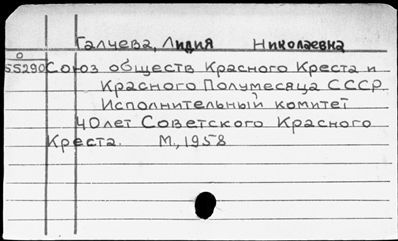 Галчева, Лидия Николаевна
О
55290 Союз обществ Красного Креста и
Красного Полумесяца СССР
Исполнительный комитет
40 лет Советского Красного
Креста. М., 1958